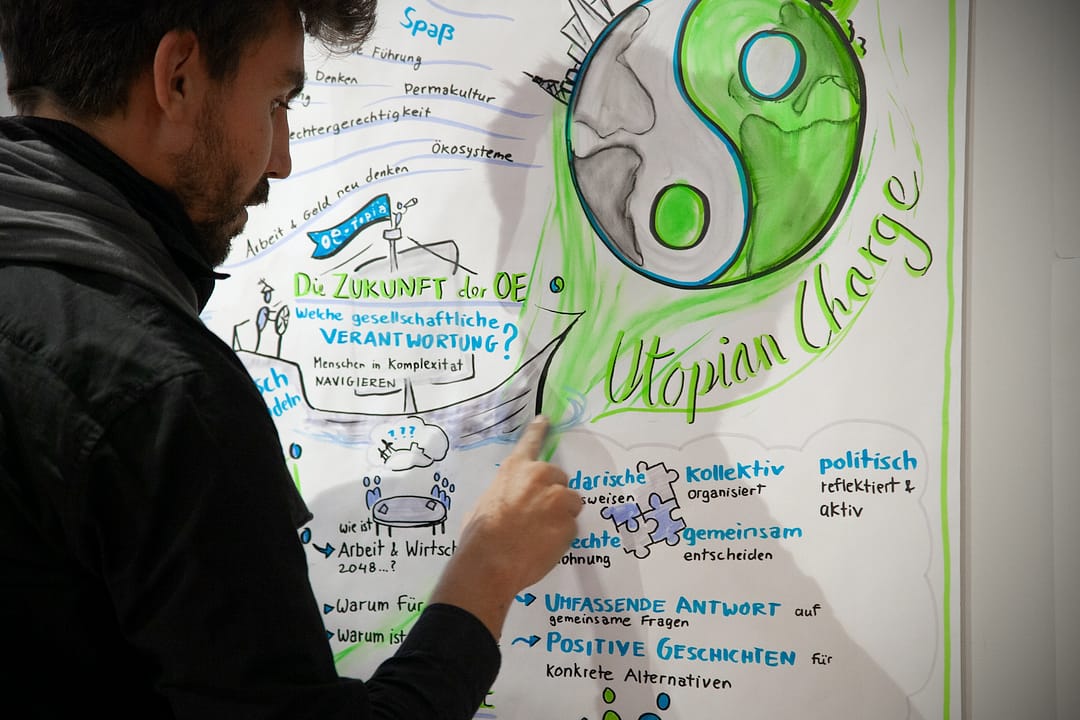 Spaß
Führung
Denken
Permakultur
echtergerechtigkeit
Ökosysteme
Arbeit & Geld neu denken
OE-topia
Die ZUKUNFT der OE
Welche gesellschaftliche
VERANTWORTUNG?
Menschen in Komplexität
NAVIGIEREN
sch
deln
???
wie ist
Arbeit & Wirtsch
2048...?
Warum für
Warum ist
Utopian Charge
darische
sweisen
kollektiv
organisiert
politisch
reflektiert &
aktiv
echte
ohnung
gemeinsam
entscheiden
UMFASSENDE ANTWORT auf
gemeinsame Fragen
POSITIVE GESCHICHTEN für
konkrete Alternativen